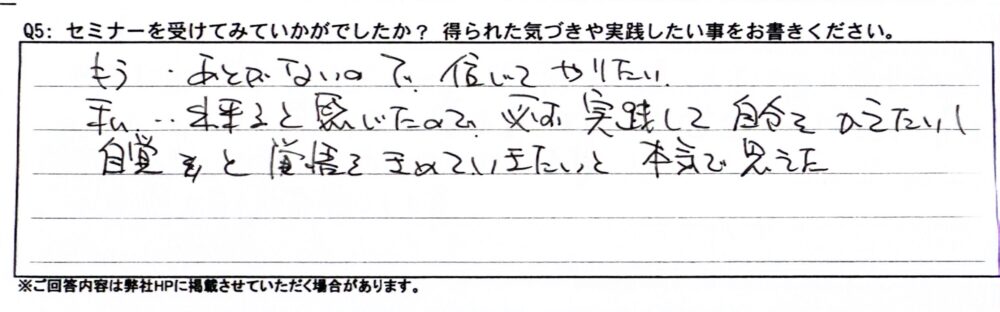 Q5: セミナーを受けてみていかがでしたか? 得られた気づきや実践したい事をお書きください。
もう・あとがないので、信じてやりたい
私・・出来ると感じたので、必ず実践して自分をかえたいし
自覚と覚悟をきめていきたいと本気で思えた
※ご回答内容は弊社HPに掲載させていただく場合があります。